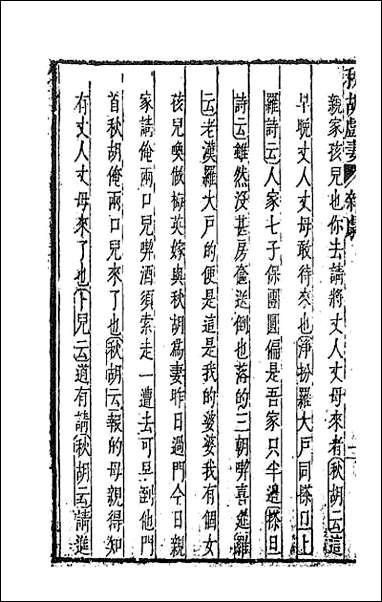 秋胡戲妻 雜劇 二
親家孩兒也你去請將丈人丈母來者秋胡云這
早晚丈人丈母敢待來也淨扮羅大戶同搽旦上
羅詩云人家七子保團圓偏是吾家只半邊搽旦
詩云雖然沒甚房奩送倒也落的三朝吃喜筵羅
云老漢羅大戶的便是這是我的婆婆我有個女
孩兒喚做梅英嫁與秋胡爲妻昨日過門今日親
家請俺兩口兒吃酒須索走一遭去可早到他門
首秋胡俺兩口兒來了也秋胡云報的母親得知
有丈人丈母來了也卜兒云道有請秋胡云請進